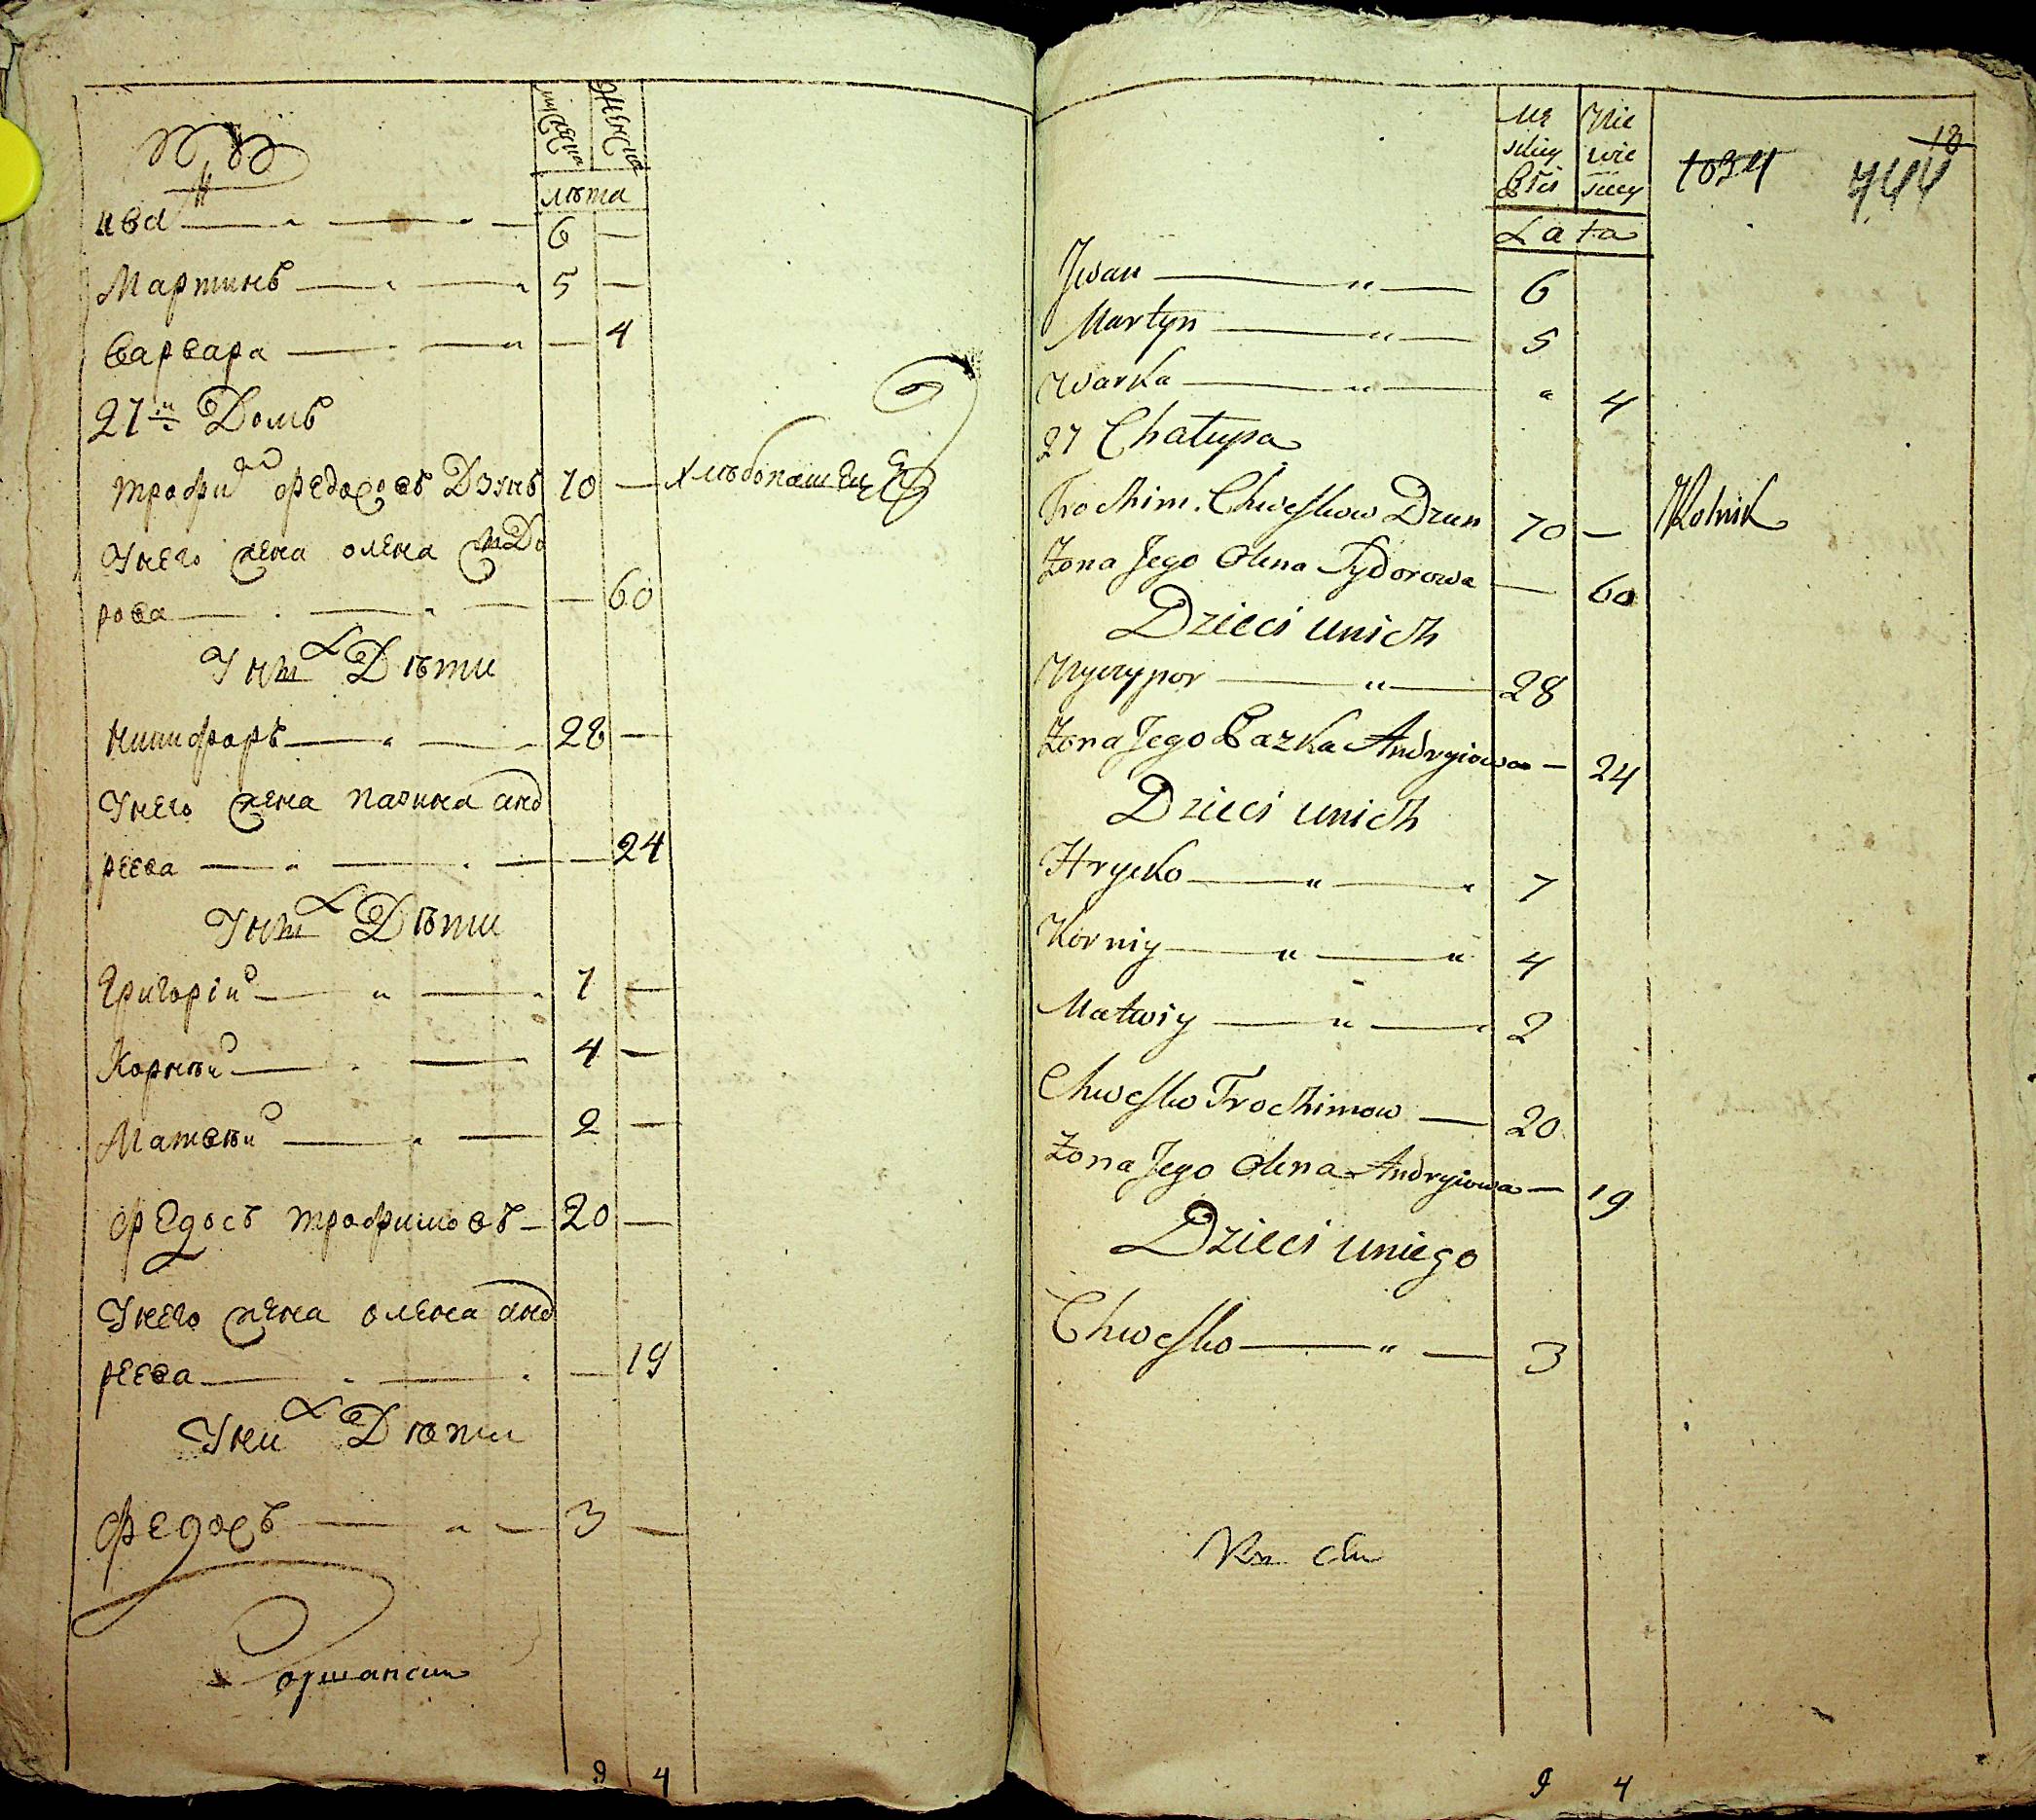 мужеска женска
лѣта
Иван — 6 —
Мартинъ — 5 —
Варвара — — 4
27й Домъ
Трофим Федосовъ Дзунъ 70 — хлѣбопашецъ
У него жена Олена Сидо
рова — — 60
У них Дѣти
Никифоръ — 28 —
У него жена Пазина Анд
реева — — 24
У них Дѣти
Григорій — 7 —
Корнѣй — 4 —
Матвѣй — 2 —
Федосъ Трофимовъ — 20 —
У него жена Олена Анд
реева — — 19
У них Дѣти
Федосъ — 3 —
9 4
Lata
18
1034
744
Jwan — " — 6
Martyn — " — 5
Warka — " — " 4
27 Chałupa
Trochim Chweskow Dzun 70 — Rolnik
Żona Jego Olena Sydorowa — 60
Dzieci unich
Nyczypor — " — 28
Żona Jego Pazka Andryiowa — 24
Dzieci unich
Hrycko — " — " 7
Korniy — " — " 4
Matwiy — " — " 2
Chwesko Trochimow — 20
Żona Jego Olena Andryiowa — 19
Dzieci uniego
Chwesko — " — 3
9 4